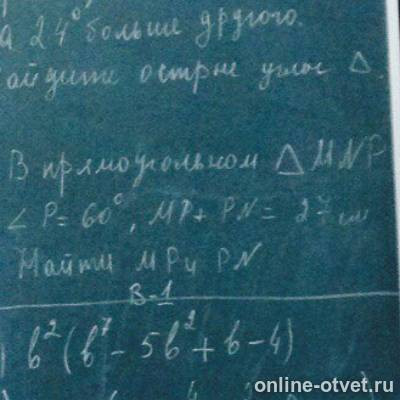 а 24° больше другого.
айдите острые углы △.
В прямоугольном △ MNP
∠ P = 60°, MP + PN = 27 см
Найти MP и PN
В-1
b²(b⁷ - 5b² + b - 4)
4
online-otvet.ru